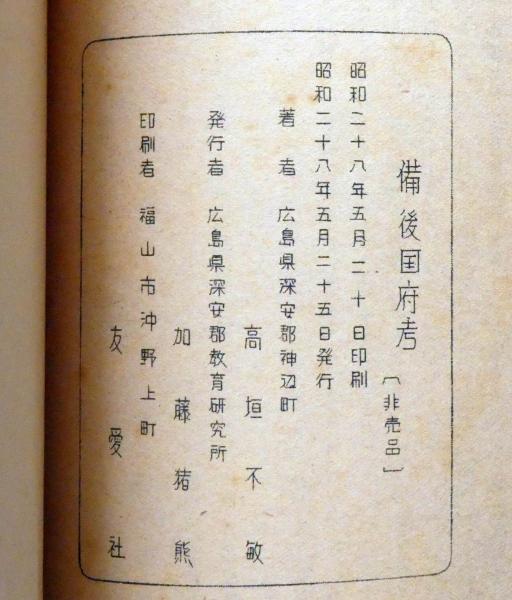 備後国府考
(非売品)
昭和二十八年五月二十日印刷
昭和二十八年五月二十五日発行
著者 広島県深安郡神辺町
高垣不敏
発行者 広島県深安郡教育研究所
加藤猪熊
印刷者 福山市沖野上町
友愛社